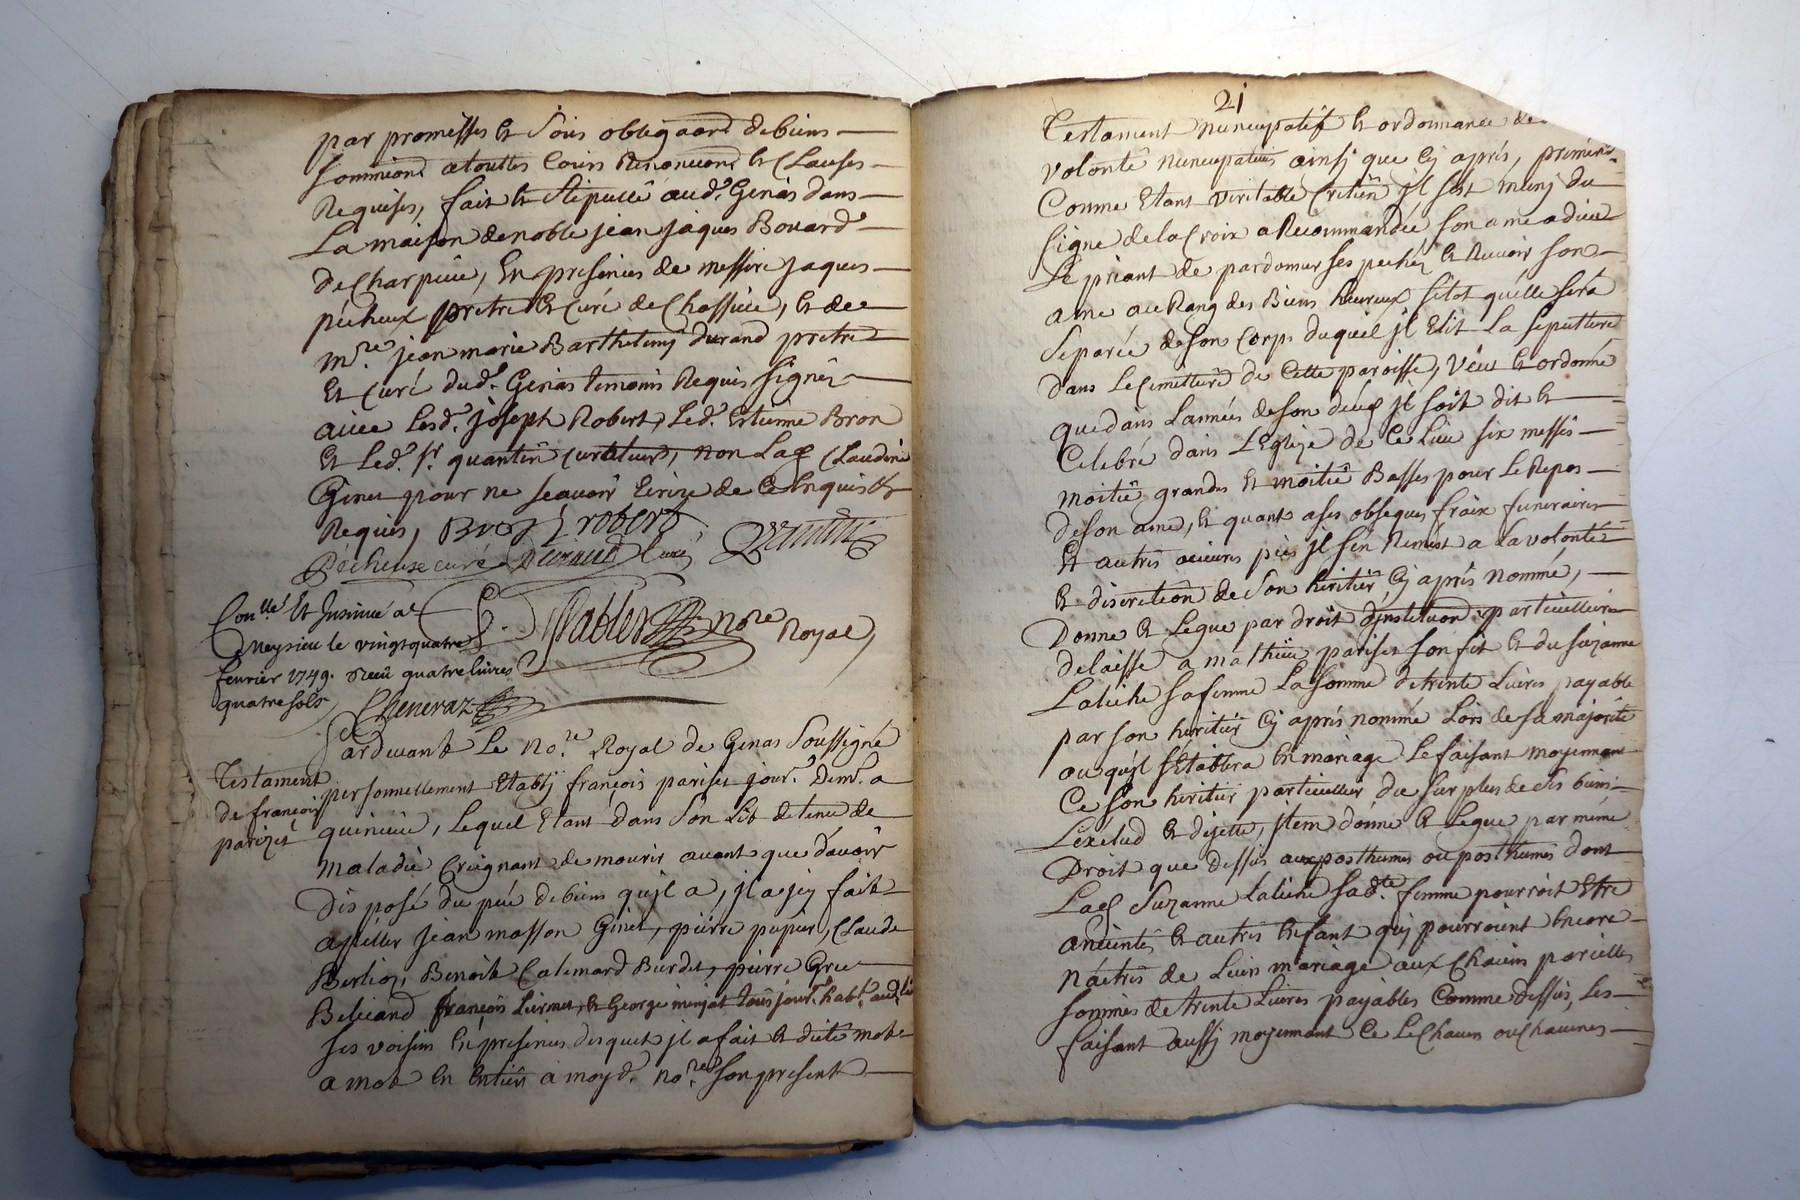 par promesses et sous obligaõns de biens
sommiõns a touttes Cours Renonciaõns et Clauses
Requises, fait et stipullé aud.t Genas dans
La maison de noble jean jaques Bovard
de Charpieu, En presences de messire jaques
pécheux pretre et Curé de Chassieu, et de
m.re jean marie Barthelemj durand pretre
Et Curé dud.t Genas temoins Requis signés
avec Lesd.t joseph Robert, Led.t Estienne Bron
Et Led.t s.r quantin, non La Claudine
Ginet pour ne sçavoir Ecrire de ce Enquis et
Requis, Bron J robert
Pécheux curé Durand Curé
Con.llé Et Insinué a
Meysieu le vingtquatre
fevrier 1749. reçu quatre livres
quatre sols
Cheneraz
no.re Royal
Pardevant Le No.re Royal de Genas soussigné
Testament
de françois
parizet
personnellement Etablj françois pariset jour.r dem.t a
quincieu, Lequel Etant dans son Lit detenu de
maladie Craignant de mourir avant que davoir
disposé du peu de biens qu'jl a, jl a jcy fait
apeller jean masson Ginet, pierre pupier, Claude
Berlioz, Benoit Calemard Burdet, pierre Gru
Beliand françois Liermet, et George minjat tous jour.rs hab.t aud.t lieu
ses voisins En presences desquels jl a fait et dicté mot
a mot En Entier a moyd.t no.re son present
21
Testament nuncupatif et ordonnance de
volonté nuncupative ainsj que Cj aprés, premier.
Comme Etant veritable Cretien jl s'est munj du
signe de la Croix a Recommandée son ame a dieu
Le priant de pardonner ses pechéz et Recevoir son
ame au Rang des Biens heureux sitot quélle sera
separée de son Corps duquel jl Elit La sepulture
dans Le Cimettiere de Cette paroisse, Veut et ordonne
que dans L'année de son décés jl soit dit et
Celebré dans L'Eglize de Ce Lieu six messes
moitié grandes Et moitié Basses pour Le Repos
de son ame, et quant a ses obseques fraix funeraires
Et autres œuvres pies jl s'en Remet a La volonté
et discretion de Son heritier Cj aprés nommé,
Donne et Legue par droit d'jnstitution particulliere
delaisse a mathieu pariset son fils et du suzanne
Laliche sa femme La somme de trente Livres payable
par son heritier Cj aprés nommé Lors de sa majorité
ou qu'jl s'Etablira En mariage Le faisant moyennant
Ce son heritier particullier du surplus de ses biens
L'exclud et dejette, jtem donne et Legue par méme
Droit que dessus aux posthumes ou posthumes dont
Suzanne Laliche sad.te femme pourroit Etre
enceinte et autres Enfant quj pourroient Encore
naitres de Leurs mariage aux Chacun pareilles
sommes de trente Livres payables Comme dessus, Les
faisant aussj moyennant Ce Le Chacun ou Chacunes